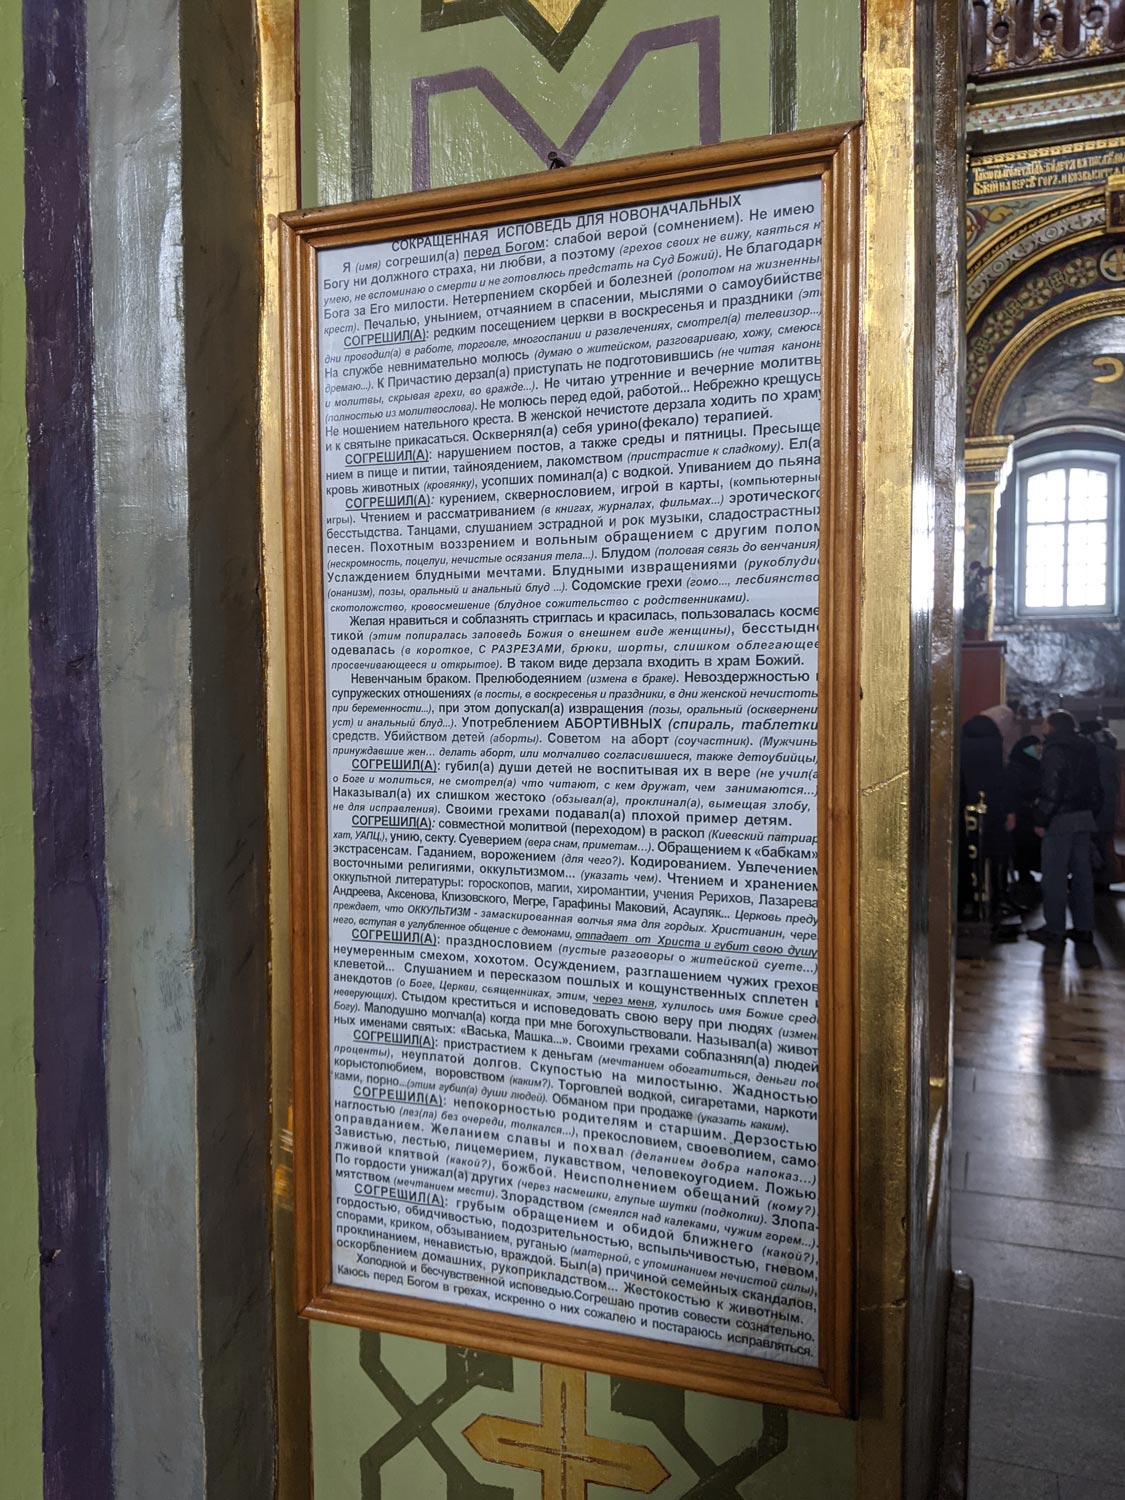 СОКРАЩЕННАЯ ИСПОВЕДЬ ДЛЯ НОВОНАЧАЛЬНЫХ
Я (имя) согрешил(а) перед Богом: слабой верой (сомнением). Не имею
Богу ни должного страха, ни любви, а поэтому (грехов своих не вижу, каяться н
умею, не вспоминаю о смерти и не готовлюсь предстать на Суд Божий). Не благодарю
Бога за Его милости. Нетерпением скорбей и болезней (ропотом на жизненны
крест). Печалью, унынием, отчаянием в спасении, мыслями о самоубийстве
СОГРЕШИЛ(А): редким посещением церкви в воскресенья и праздники (эти
дни проводил(а) в работе, торговле, многоспании и развлечениях, смотрел(а) телевизор...)
На службе невнимательно молюсь (думаю о житейском, разговариваю, хожу, смеюсь
дремаю...). К Причастию дерзал(а) приступать не подготовившись (не читая каноны
и молитвы, скрывая грехи, во вражде...). Не читаю утренние и вечерние молитвы
(полностью из молитвослова). Не молюсь перед едой, работой... Небрежно крещусь
Не ношением нательного креста. В женской нечистоте дерзала ходить по храму
и к святыне прикасаться. Осквернял(а) себя урино(фекало) терапией.
СОГРЕШИЛ(А): нарушением постов, а также среды и пятницы. Пресыще
нием в пище и питии, тайноядением, лакомством (пристрастие к сладкому). Ел(а
кровь животных (кровянку), усопших поминал(а) с водкой. Упиванием до пьяна
СОГРЕШИЛ(А): курением, сквернословием, игрой в карты, (компьютерные
игры). Чтением и рассматриванием (в книгах, журналах, фильмах...) эротического
бесстыдства. Танцами, слушанием эстрадной и рок музыки, сладострастных
песен. Похотным воззрением и вольным обращением с другим полом
(нескромность, поцелуи, нечистые осязания тела...). Блудом (половая связь до венчания)
Услаждением блудными мечтами. Блудными извращениями (рукоблудие
(онанизм), позы, оральный и анальный блуд ...). Содомские грехи (гомо..., лесбиянство
скотоложство, кровосмешение (блудное сожительство с родственниками).
Желая нравиться и соблазнять стриглась и красилась, пользовалась косме
тикой (этим попиралась заповедь Божия о внешнем виде женщины), бесстыдно
одевалась (в короткое, С РАЗРЕЗАМИ, брюки, шорты, слишком облегающее
просвечивающееся и открытое). В таком виде дерзала входить в храм Божий.
Невенчаным браком. Прелюбодеянием (измена в браке). Невоздержностью в
супружеских отношениях (в посты, в воскресенья и праздники, в дни женской нечистоты
при беременности...), при этом допускал(а) извращения (позы, оральный (осквернени
уст) и анальный блуд...). Употреблением АБОРТИВНЫХ (спираль, таблетки
средств. Убийством детей (аборты). Советом на аборт (соучастник). (Мужчины
принуждавшие жен... делать аборт, или молчаливо согласившиеся, также детоубийцы)
СОГРЕШИЛ(А): губил(а) души детей не воспитывая их в вере (не учил(а
о Боге и молиться, не смотрел(а) что читают, с кем дружат, чем занимаются...)
Наказывал(а) их слишком жестоко (обзывал(а), проклинал(а), вымещая злобу,
не для исправления). Своими грехами подавал(а) плохой пример детям.
СОГРЕШИЛ(А): совместной молитвой (переходом) в раскол (Киевский патриар
хат, УАПЦ,), унию, секту. Суеверием (вера снам, приметам...). Обращением к «бабкам»
экстрасенсам. Гаданием, ворожением (для чего?). Кодированием. Увлечением
восточными религиями, оккультизмом... (указать чем). Чтением и хранением
оккультной литературы: гороскопов, магии, хиромантии, учения Рерихов, Лазарева
Андреева, Аксенова, Клизовского, Мегре, Гарафины Маковий, Асауляк... Церковь преду
преждает, что ОККУЛЬТИЗМ - замаскированная волчья яма для гордых. Христианин, через
него, вступая в углубленное общение с демонами, отпадает от Христа и губит свою душу
СОГРЕШИЛ(А): празднословием (пустые разговоры о житейской суете...)
неумеренным смехом, хохотом. Осуждением, разглашением чужих грехов
клеветой... Слушанием и пересказом пошлых и кощунственных сплетен и
анекдотов (о Боге, Церкви, священниках, этим, через меня, хулилось имя Божие сред
неверующих). Стыдом креститься и исповедовать свою веру при людях (измен
Богу). Малодушно молчал(а) когда при мне богохульствовали. Называл(а) живот
ных именами святых: «Васька, Машка...». Своими грехами соблазнял(а) людей
СОГРЕШИЛ(А): пристрастием к деньгам (мечтанием обогатиться, деньги под
проценты), неуплатой долгов. Скупостью на милостыню. Жадностью
корыстолюбием, воровством (каким?). Торговлей водкой, сигаретами, наркоти
ками, порно...(этим губил(а) души людей). Обманом при продаже (указать каким).
СОГРЕШИЛ(А): непокорностью родителям и старшим. Дерзостью
наглостью (лез(ла) без очереди, толкался...), прекословием, своеволием, само-
оправданием. Желанием славы и похвал (деланием добра напоказ...)
Завистью, лестью, лицемерием, лукавством, человекоугодием. Ложью
лживой клятвой (какой?), божбой. Неисполнением обещаний (кому?).
По гордости унижал(а) других (через насмешки, глупые шутки (подколки). Злопа-
мятством (мечтанием мести). Злорадством (смеялся над калеками, чужим горем...).
СОГРЕШИЛ(А): грубым обращением и обидой ближнего (какой?),
гордостью, обидчивостью, подозрительностью, вспыльчивостью, гневом,
спорами, криком, обзыванием, руганью (матерной, с упоминанием нечистой силы),
проклинанием, ненавистью, враждой. Был(а) причиной семейных скандалов,
оскорблением домашних, рукоприкладством... Жестокостью к животным.
Холодной и бесчувственной исповедью.Согрешаю против совести сознательно.
Каюсь перед Богом в грехах, искренно о них сожалею и постараюсь исправляться.